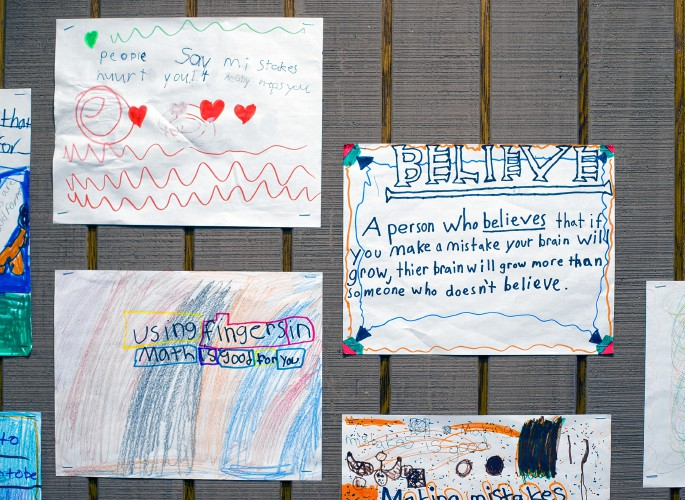 people Say mistakes
huurt you It
BELIEVE
A person who believes that if
you make a mistake your brain will
grow, thier brain will grow more than
someone who doesn't believe.
using fingers in
Math is good for you
Making mistakes
that
for
to